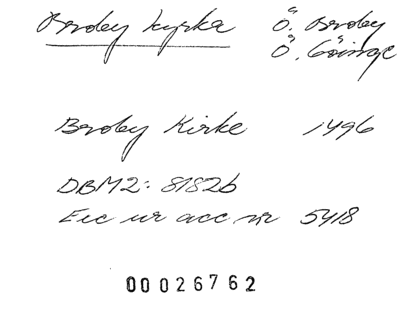 Broby kyrka Ö. Broby
Ö. Göinge
Broby Kirke 1496
DBM2: 8182b
Exc ur acc nr 5418
00026762